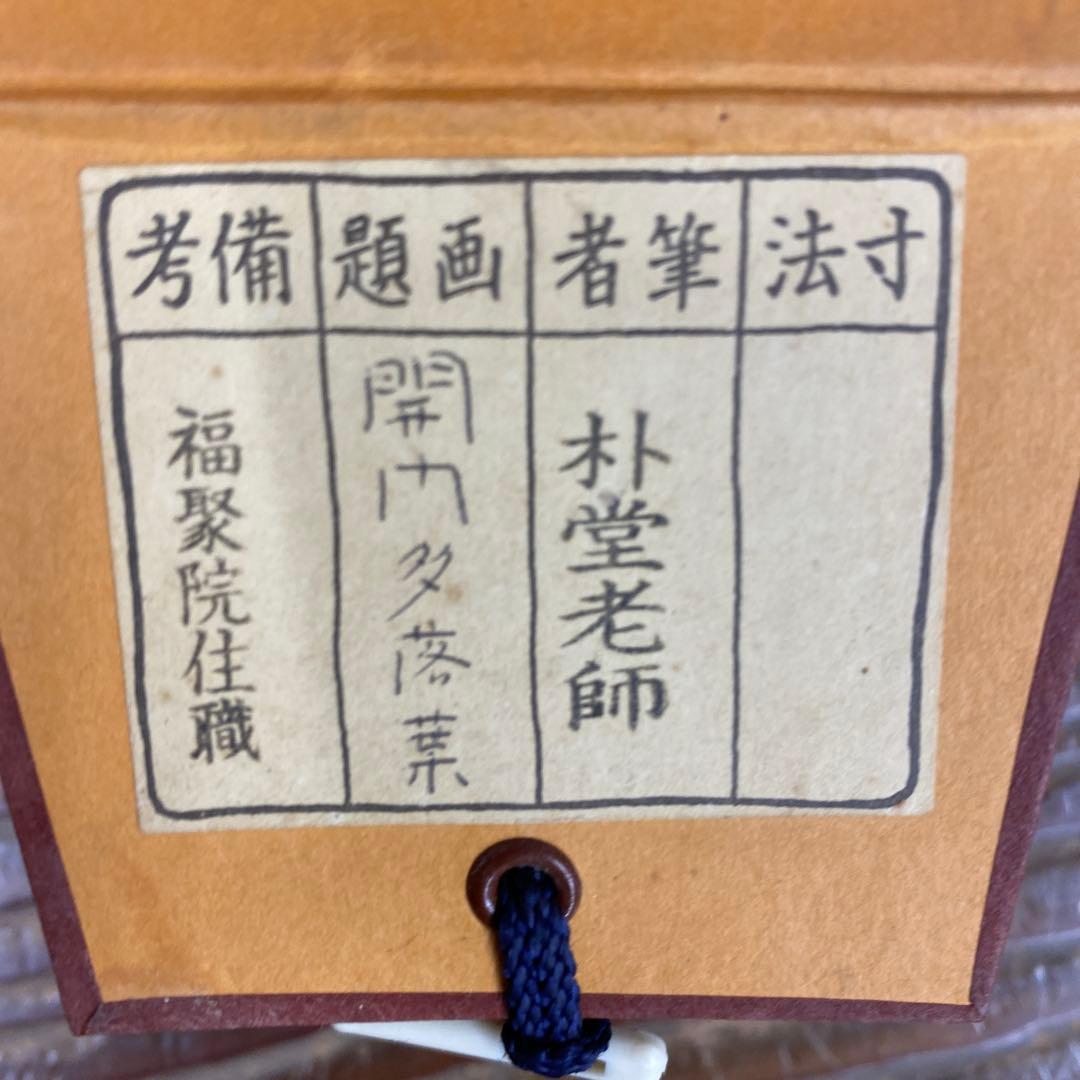 寸法
筆者
朴堂老師
画題
開門多落葉
備考
福聚院住職